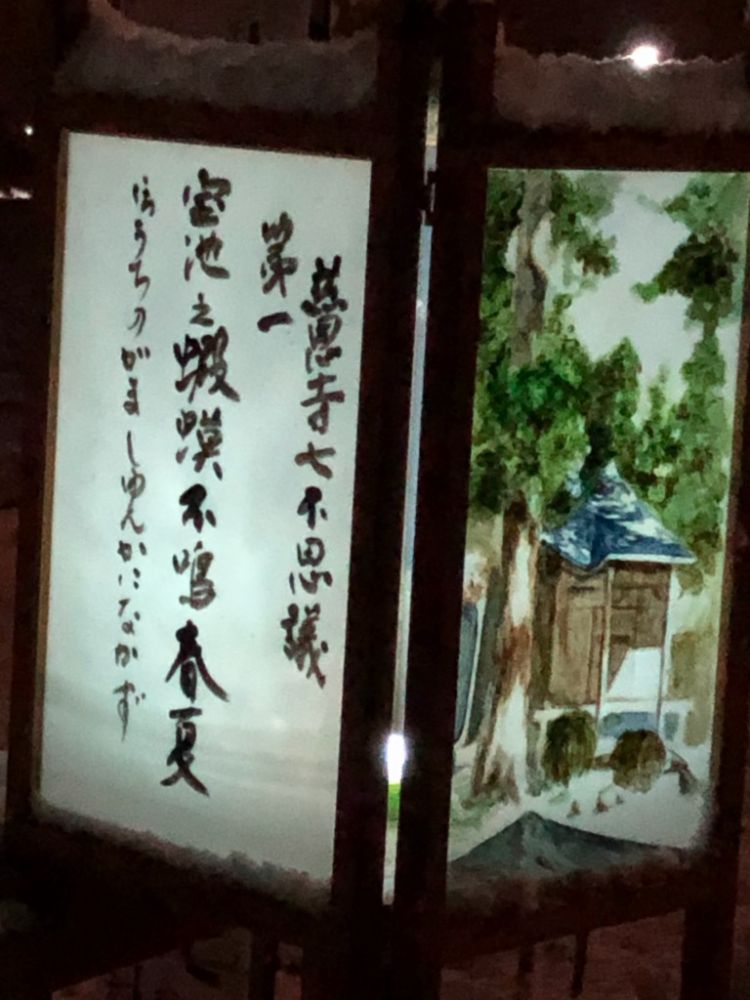 慈恩寺七不思議
第一
宝池之蝦蟆不鳴春夏
ほうちのがましゆんかになかず